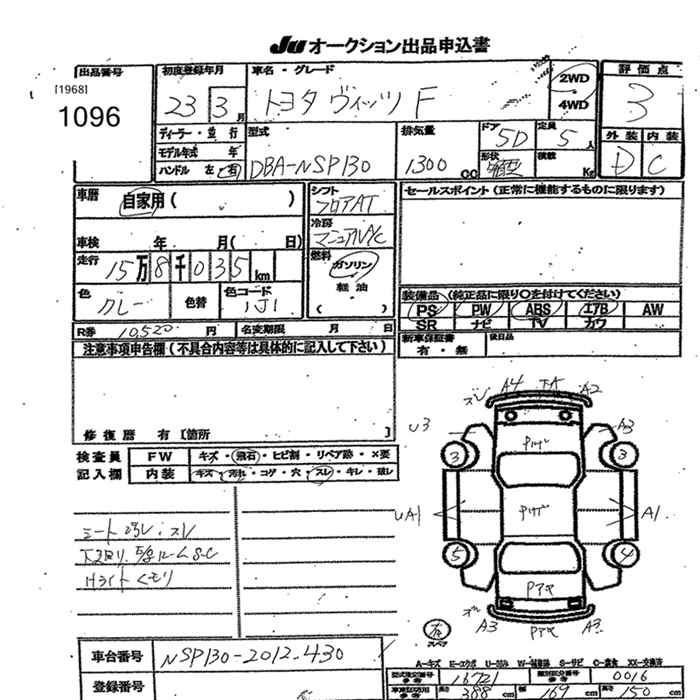 JU オークション出品申込書
出品番号
[1968]
1096
初度登録年月
23 3月
車名・グレード
トヨタ ヴィッツ F
2WD
4WD
評価点
3
ディーラー・並行
モデル年式 年
ハンドル 左・右
型式
DBA-NSP130
排気量
1300 CC
ドア 5D
定員 5人
形状 箱型
積載 Kg
外装 内装
D C
車歴
自家用 ( )
シフト
フロアAT
セールスポイント(正常に機能するものに限ります)
車検 年 月( 日)
冷房
マニュアルA/C
走行
15万8千035km
燃料
ガソリン
軽油
( )
色
グレー
色替
色コード
1J1
装備品(純正品に限り○を付けてください)
PS PW ABS エアB AW
SR ナビ TV カワ
R券 10,520 円
名変期限 月 日
新車保証書
有・無
後日品
注意事項申告欄(不具合内容等は具体的に記入して下さい)
修復歴 有 [箇所 ]
検査員
記入欄
FW キズ・飛石・ヒビ割・リペア跡・×要
内装 キズ・汚れ・コゲ・穴・スレ・キレ・破レ
ズレ A4 A2
U3 A3
3 3
UA1 A1
5 4
Pアサ
A3 PアサA3
シート スレ
Hライト クモリ
有
スペア
車台番号
NSP130-2012430
登録番号
A-キズ E-エクボ U-凹み W-補修跡 S-サビ C-腐食 XX-交換済
型式指定番号
参考
16721
類別区分番号
参考
0016
388 cm 169 cm 150 cm